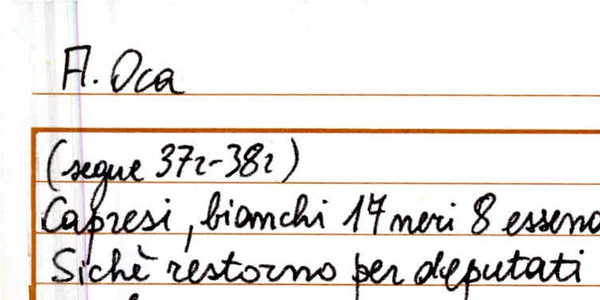 A. Oca
(segue 37r-38r)
Capresi, bianchi 14 neri 8
Sichè restorno per deputati